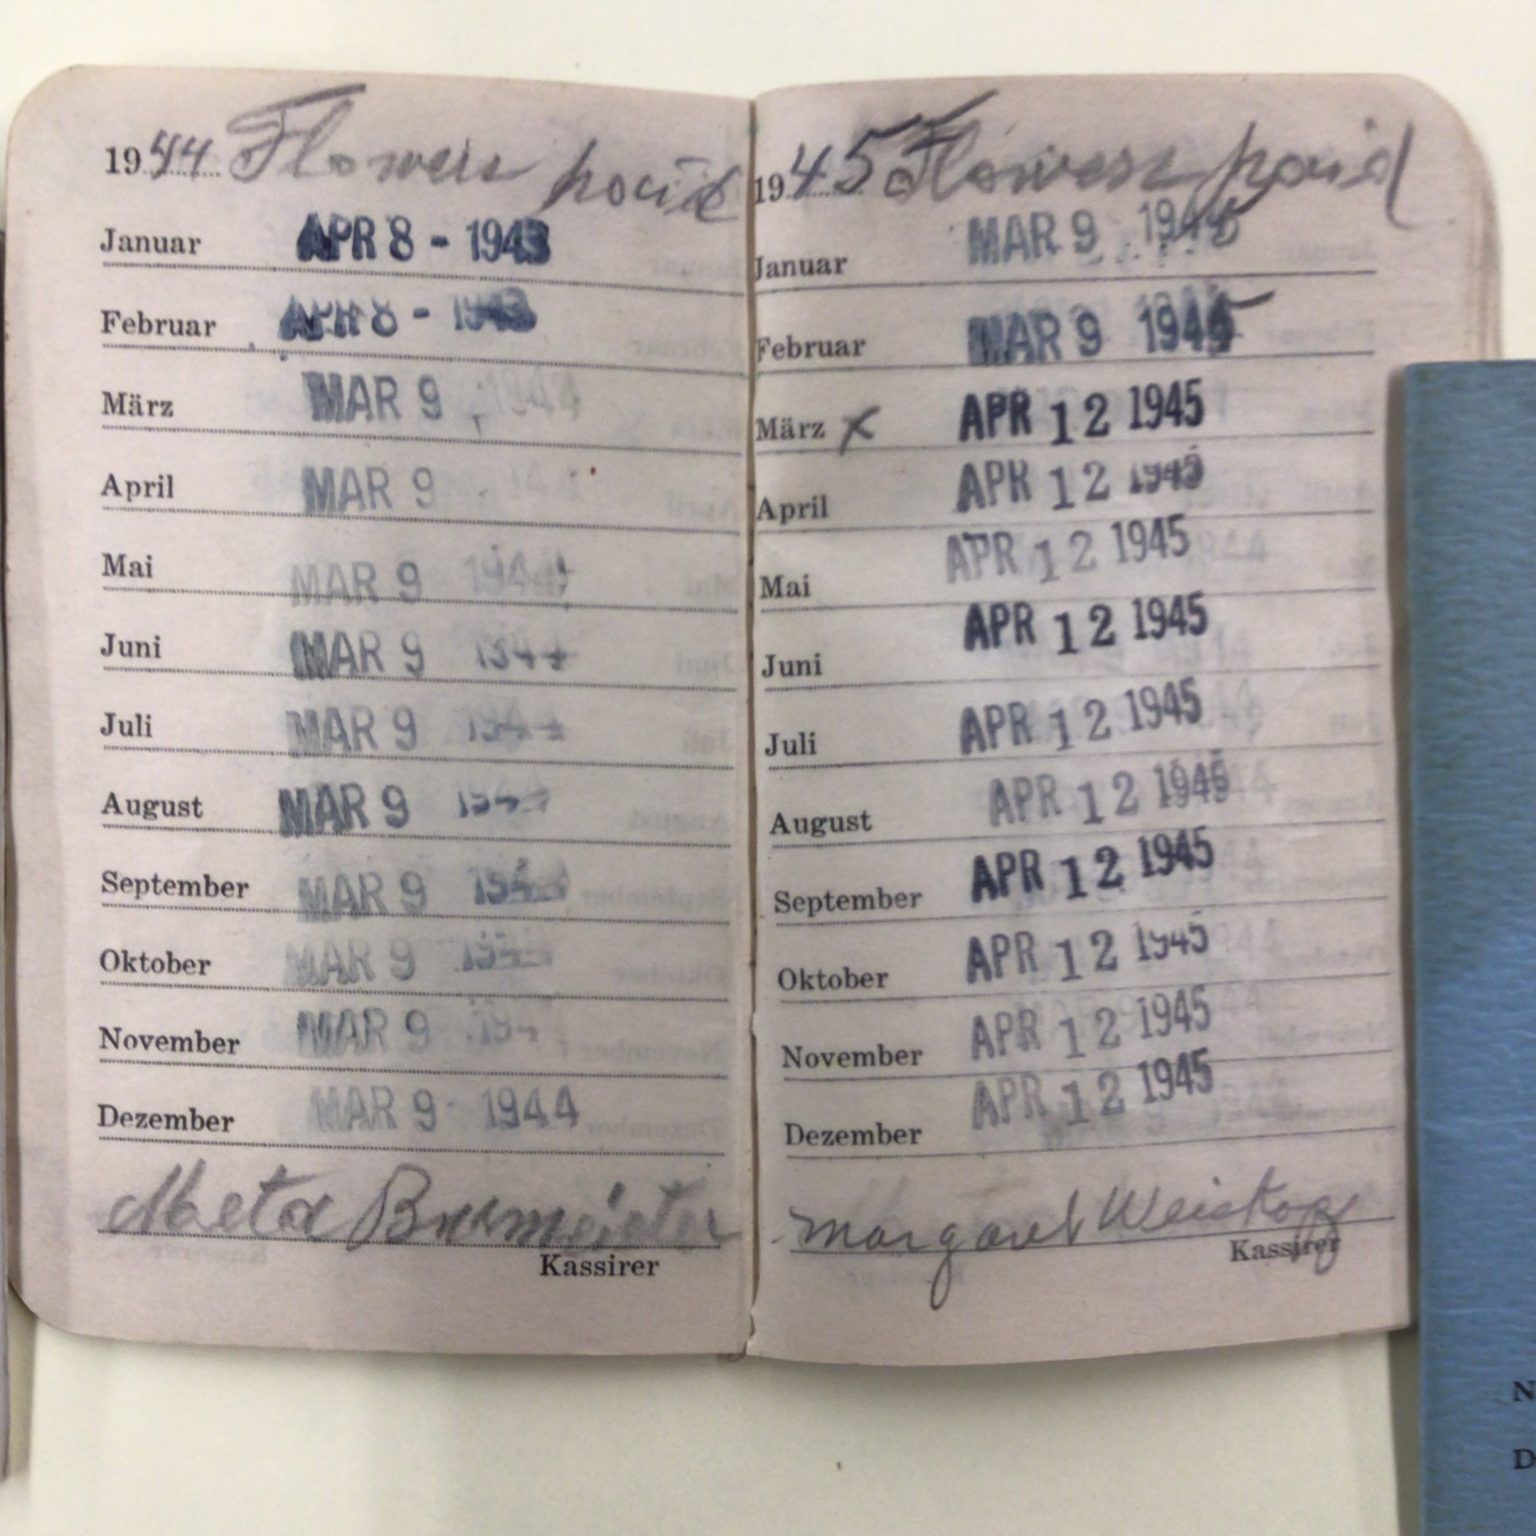 1944 Flowers paid
Januar APR 8 - 1943
Februar APR 8 - 1943
März MAR 9 1944
April MAR 9
Mai MAR 9 1944
Juni MAR 9 1944
Juli MAR 9 1944
August MAR 9 1944
September MAR 9 1944
Oktober MAR 9 1944
November MAR 9 194
Dezember MAR 9 1944
Meta Burmeister
Kassirer
1945 Flowers paid
Januar MAR 9 1945
Februar MAR 9 1945
März X APR 12 1945
April APR 12 1945
Mai APR 12 1945
Juni APR 12 1945
Juli APR 12 1945
August APR 12 1945
September APR 12 1945
Oktober APR 12 1945
November APR 12 1945
Dezember APR 12 1945
Margaret Weiskopf
Kassirer
N
D